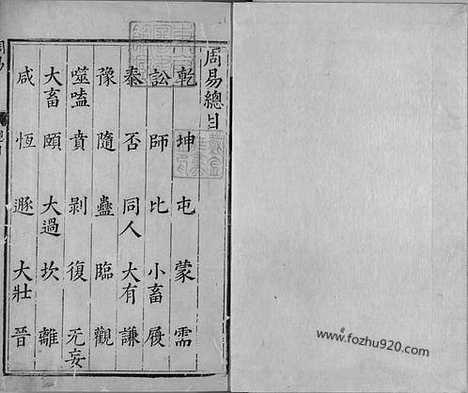 周易總目
乾 坤 屯 蒙 需
訟 師 比 小畜 履
泰 否 同人 大有 謙
豫 隨 蠱 臨 觀
噬嗑 賁 剥 復 无妄
大畜 頤 大過 坎 離
咸 恆 遯 大壯 晉
www.fozhu920.com